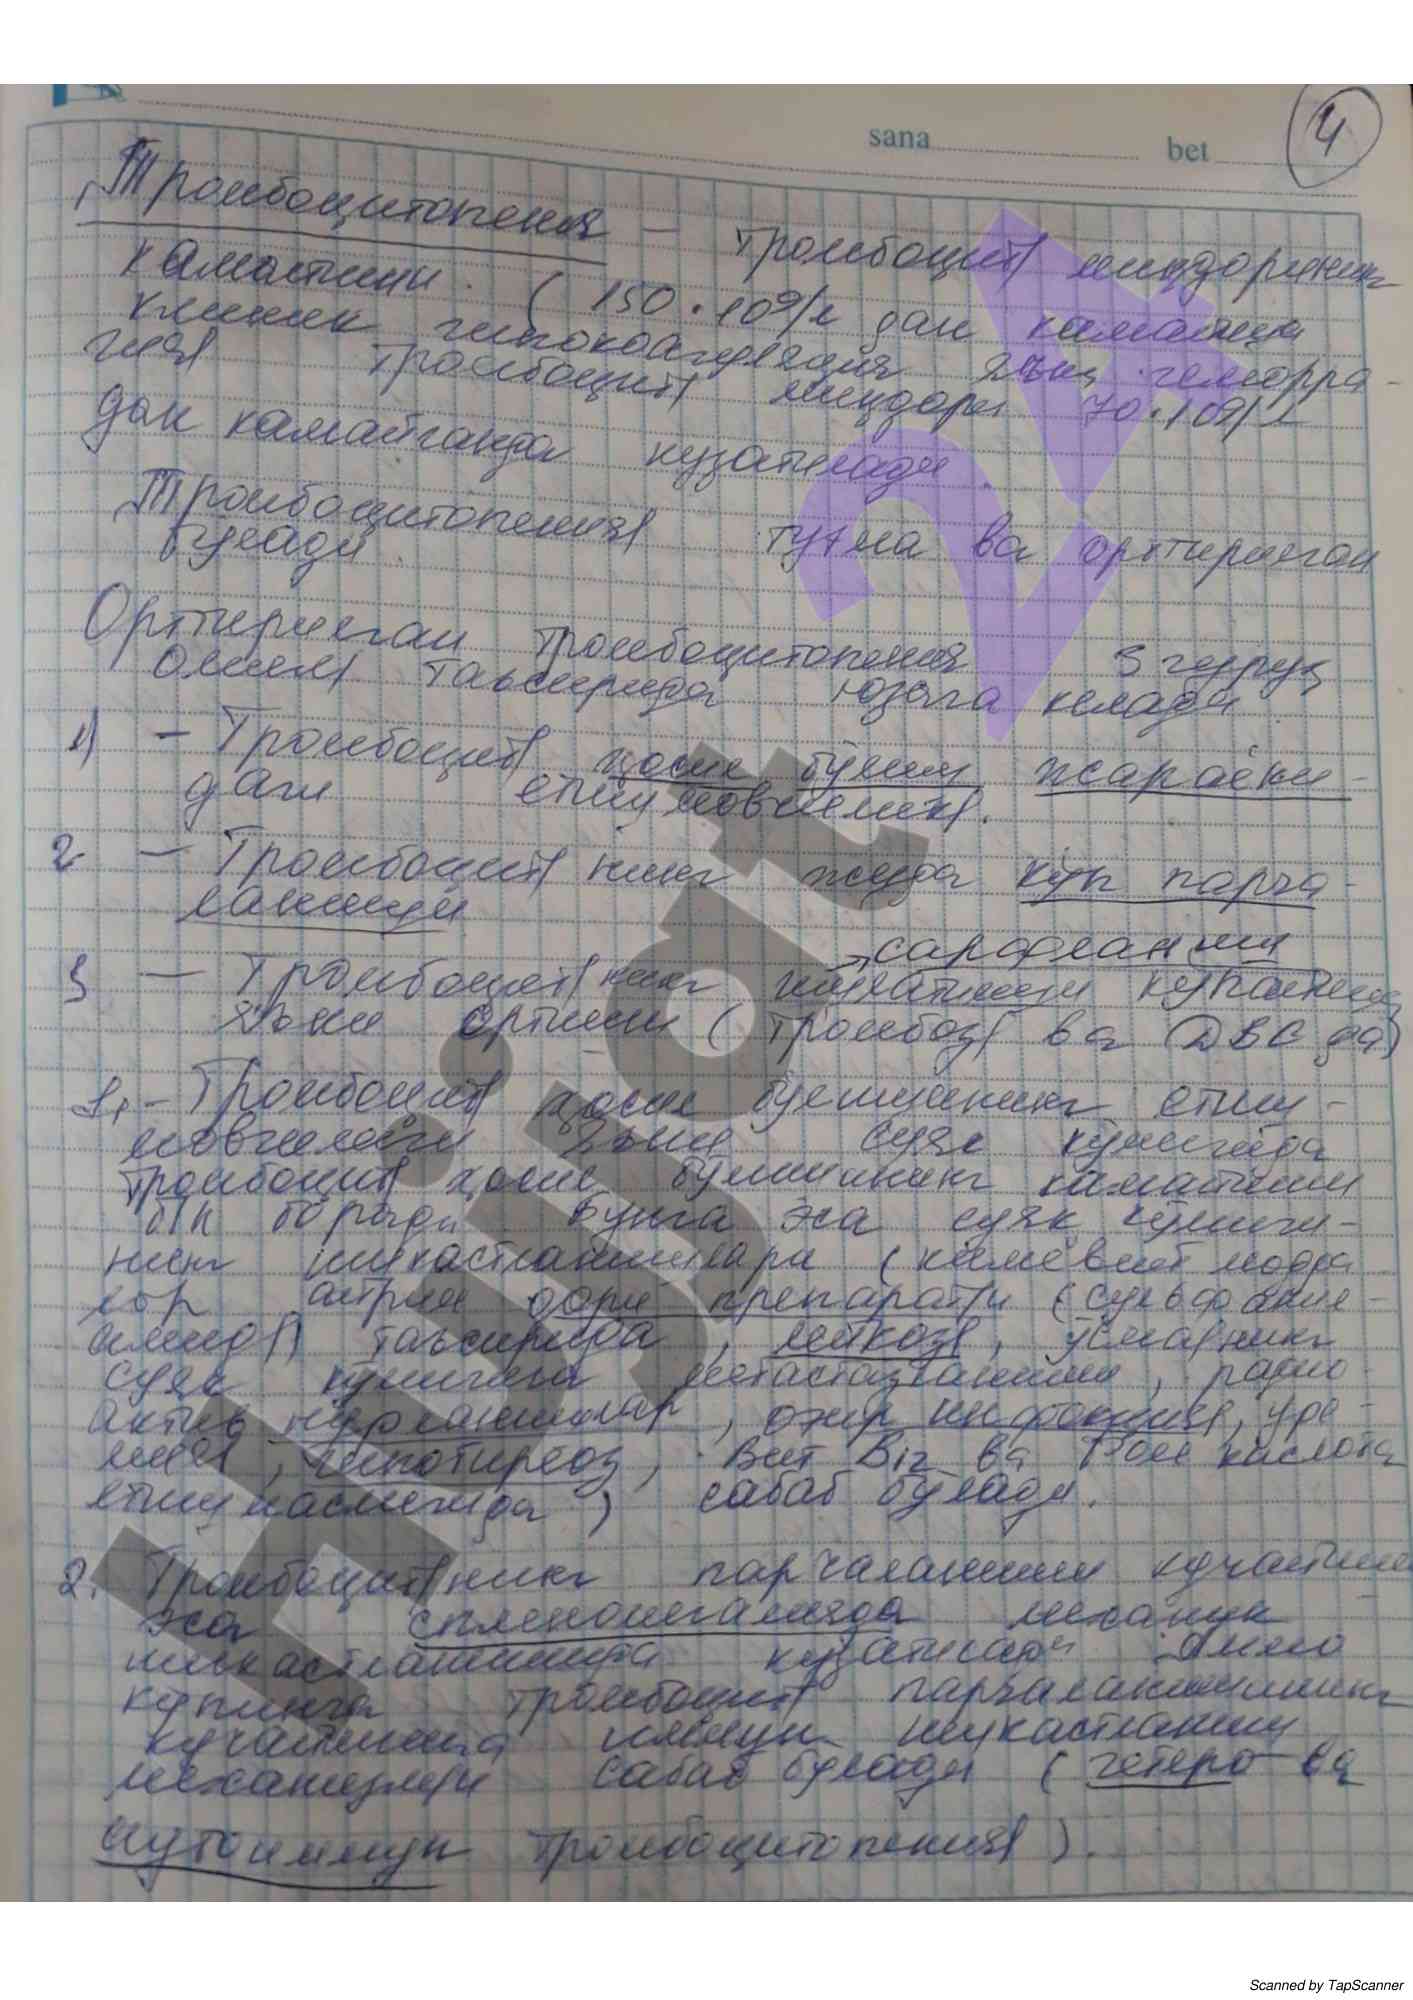 sana bet 4
Тромбоцитопения – тромбоцит( миқдорининг
камайиши. ( 150·10⁹/л дан камайиши
клиник гипокоагуляция яъни геморра-
гия тромбоцит( миқдори 70·10⁹/л
дан камайганда кузатилади.
Тромбоцитопения( туғма ва орттирилган
бўлади.
Орттирилган тромбоцитопения 3 гуруҳ
омил( таъсирида юзага келади.
1) – Тромбоцит( ҳосил бўлиш жараёни-
даги етишмовчилик(.
2 – Тромбоцит( нинг жуда кўп парча-
ланиши
сарфланиши
3 – Тромбоцит( нинг кўпайиши
яъни ортиши ( тромбоз( ва ДВС да)
1. – Тромбоцит( ҳосил бўлишининг етиш-
мовчилиги яъни суяк кўмигида
тромбоцит( ҳосил бўлишининг камайиши
б/н боради. Бунга эса суяк кўмиги-
нинг шикастланишлари (кимёвий модда
лар айрим дори препарати (сульфанил-
амид() таъсирида, лейкоз(, ўсманинг
суяк кўмигига метастазланиши, радио-
актив нурланишлар, оғир инфекция(, уре-
мия, гипотиреоз, Вит B12 ва Фол кислота
етишмаслигида ) сабаб бўлади.
2. Тромбоцит( нинг парчаланиши кучайиши
эса спленомегалияда механик
шикастланишида кузатилади Аммо
кўпинча тромбоцит( парчаланишининг
кучайишига иммун шикастланиш
механизми сабаб бўлади ( гетеро ва
аутоиммун тромбоцитопения( ).
Hijjat 24
Scanned by TapScanner